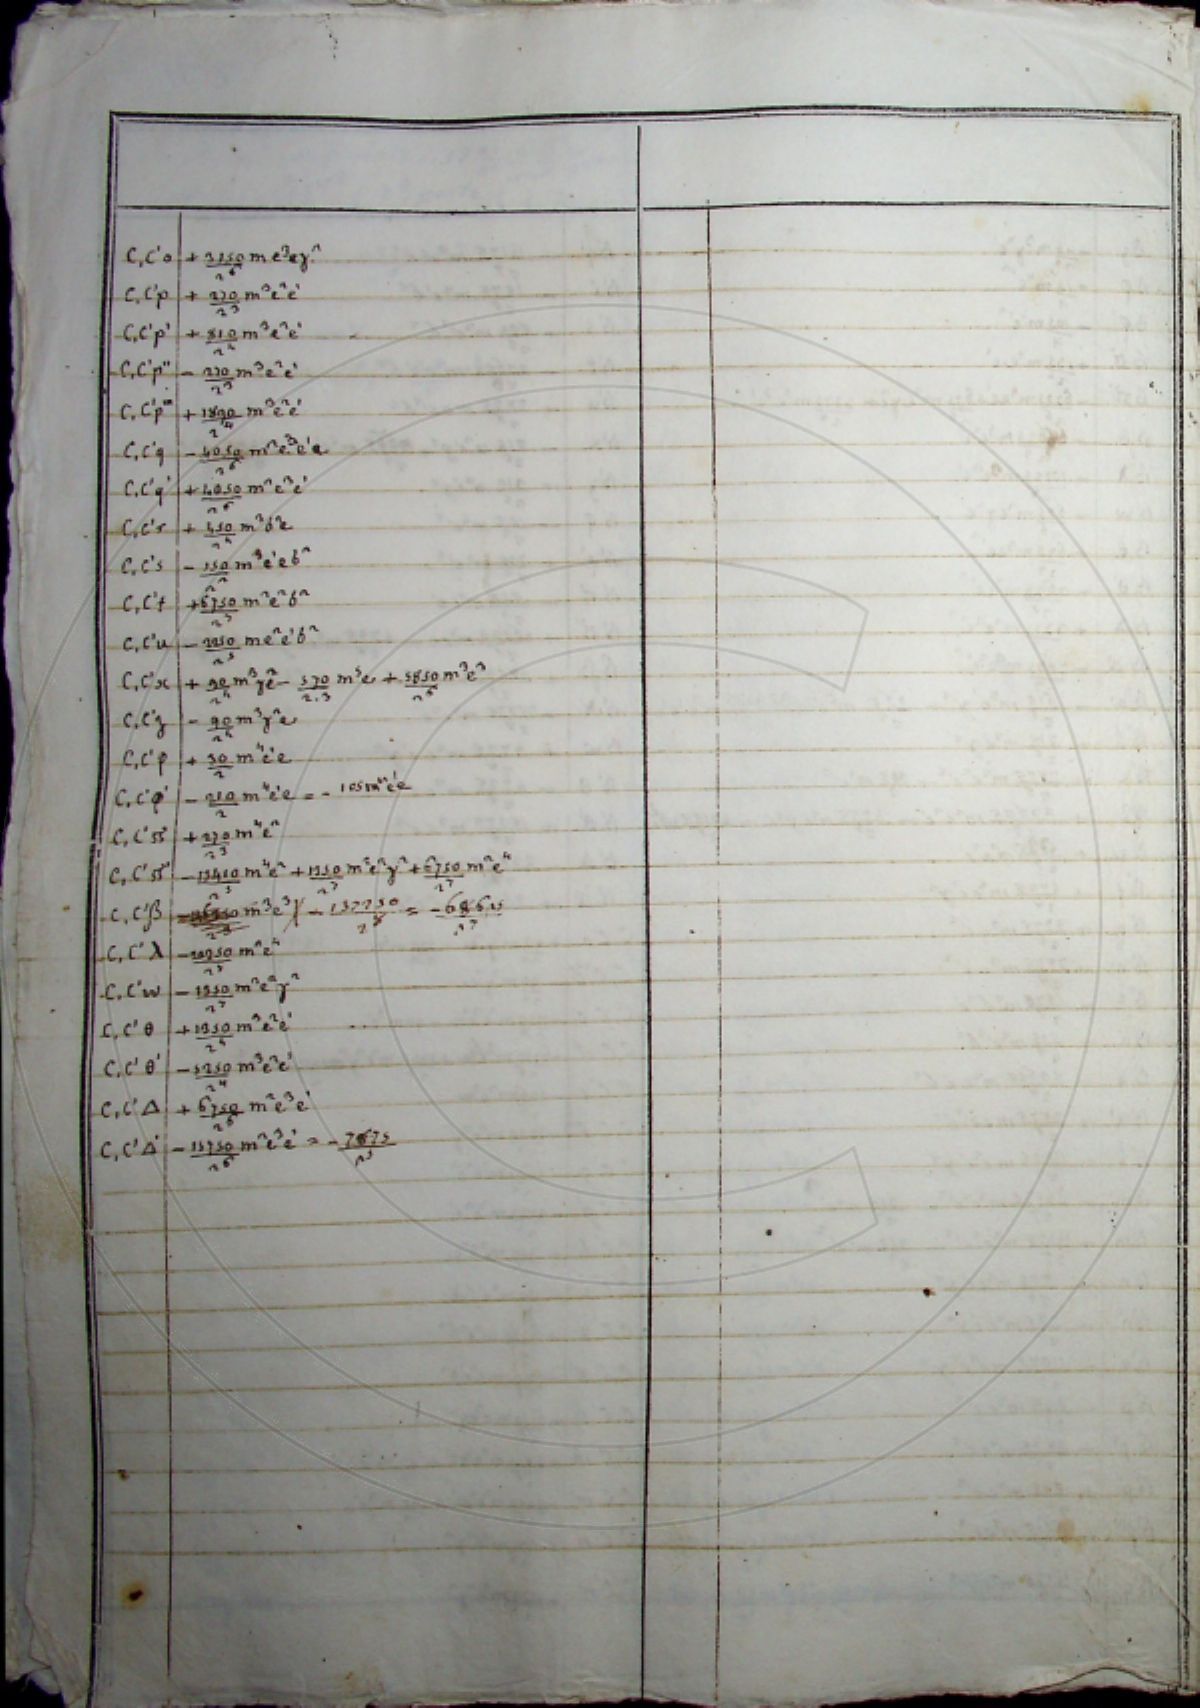 C,C'o + 3150/2^6 m e³ e γ²
C,C'p + 270/2³ m³e²e'
C,C'p' + 810/2² m³e²e'
C,C'p" − 270/2³ m³e²e'
C,C'p''' + 1890/2⁴ m³e²e'
C,C'q − 4050/2⁶ m²e³e'e
C,C'q' + 4050/2⁶ m²e²e'
C,C'r + 450/2⁴ m³b²e
C,C's − 150/2² m³e'eb²
C,C't + 6750/2⁵ m²e²b²
C,C'u − 2250/2⁵ me²e'b²
C,C'x + 90/2⁴ m³γe² − 570/2.3 m³e + 5850/2⁶ m³e³
C,C'z − 90/2⁴ m³γ²e
C,C'φ + 30/2 m⁴e'e
C,C'φ' − 210/2 m⁴e'e = − 105m⁴e'e
C,C'π + 270/2³ m⁴e²
C,C'π' − 13410/2⁵ m⁴e² + 1350/2⁷ m²e²γ² + 6750/2⁷ m²e⁴
C,C'β m³e³ − 137250/2⁸ =
C,C'λ m²e⁴
C,C'w − 1350/2⁷ m²e²γ²
C,C'θ + 1350/2⁴ m³e²e'
C,C'θ' − 5250/2⁴ m³e²e'
C,C'Δ + 6750/2⁶ m²e³e'
C,C'Δ' − 15750/2⁶ m²e³e' = − 7875/2⁵